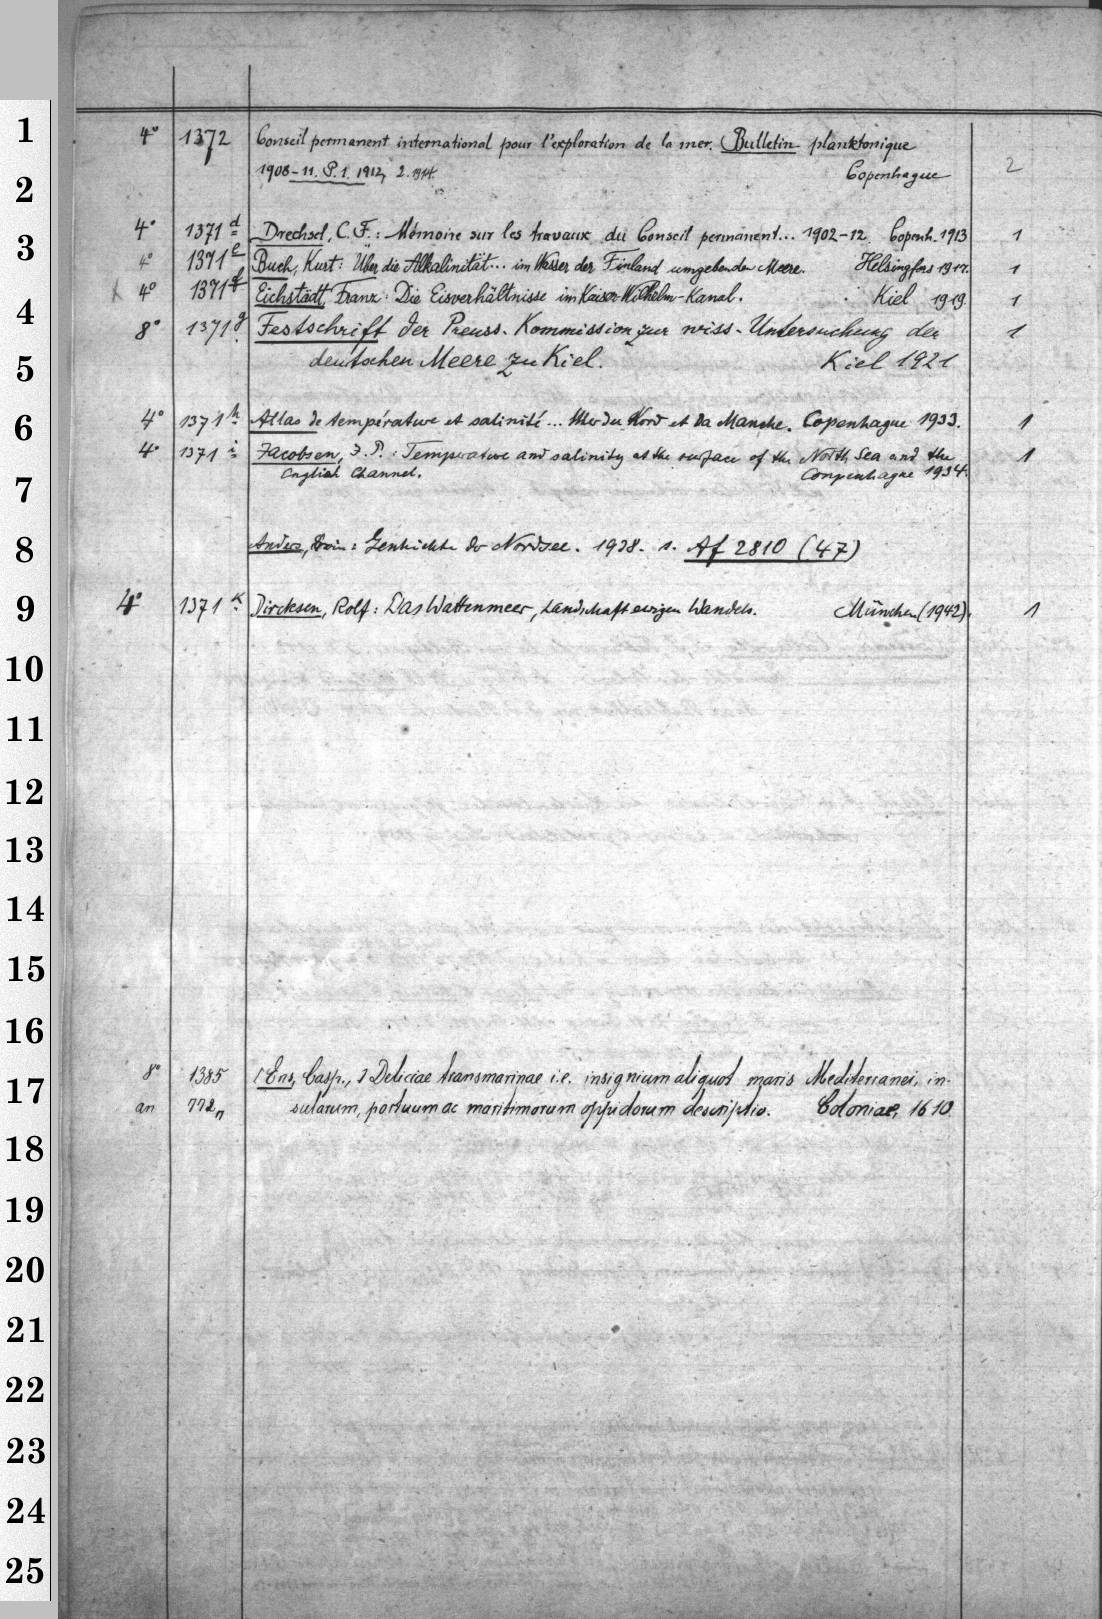 1
4° 1372 Conseil permanent international pour l'exploration de la mer. Bulletin planktonique
2
1908-11. P. 1. 1912, 2. 1914. Copenhague 2
3
4° 1371 d Drechsel, C. F.: Mémoire sur les travaux du Conseil permanent... 1902-12. Copenh. 1913 1
4° 1371 e Buch, Kurt: Über die Alkalinität... im Wasser der Finland umgebenden Meere. Helsingfors 1917. 1
4
4° 1371 f Eichstädt, Franz: Die Eisverhältnisse im Kaiser-Wilhelm-Kanal. Kiel 1919. 1
8° 1371 g Festschrift der Preuss. Kommission zur wiss. Untersuchung der 1
5
deutschen Meere zu Kiel. Kiel 1921
6
4° 1371 h Atlas de température et salinité... Mer du Nord et da Manche. Copenhague 1933. 1
4° 1371 i Jacobsen, J. P.: Temperature and salinity at the surface of the North Sea and the 1
7
English Channel. Conpenhague 1934.
8
: Geschichte der Nordsee. 1938. s. Af 2810 (47)
9
4° 1371 k Dircksen, Rolf: Das Wattenmeer, Landschaft ewigen Wandels. München (1942). 1
10
11
12
13
14
15
16
8° 1385 Ens, Casp., Deliciae transmarinae i. e. insignium aliquot maris Mediterranei, in-
17
an 772n sularum, portuum ac maritimorum oppidorum descriptio. Coloniae, 1610.
18
19
20
21
22
23
24
25